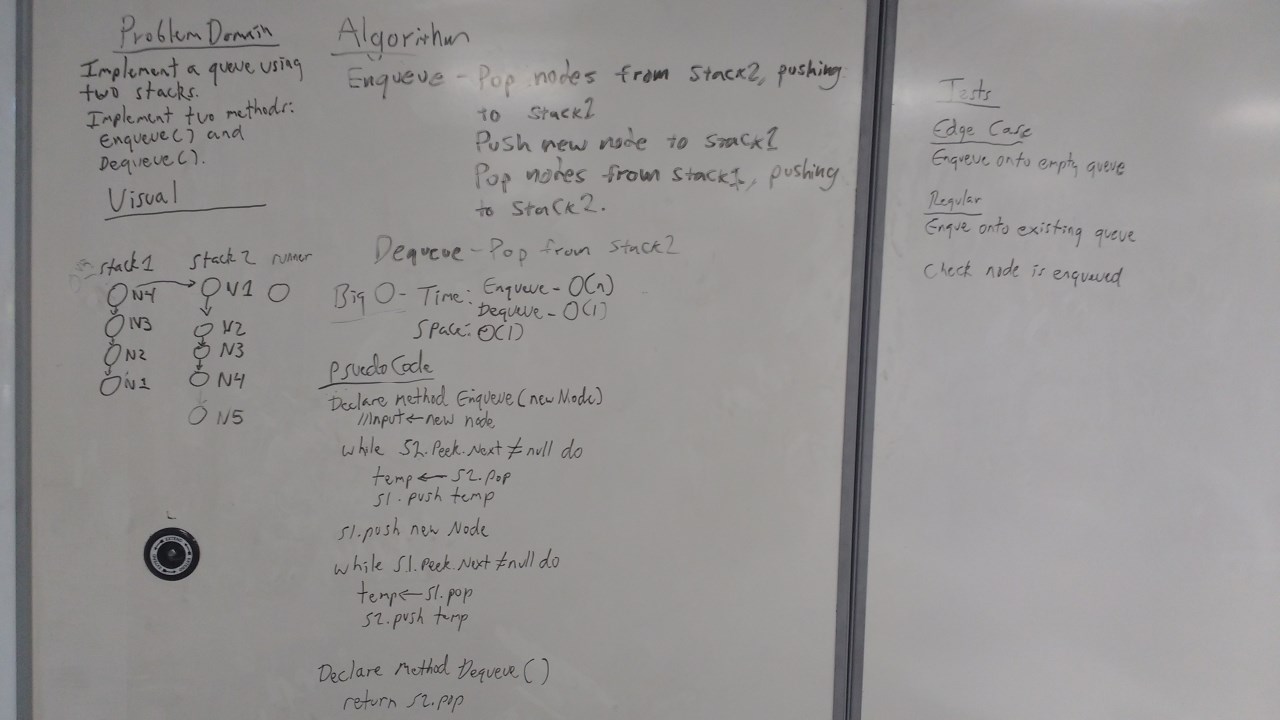 Problem Domain
Implement a queue using
two stacks.
Implement two methods:
Enqueue() and
Dequeue().
Visual
stack1 stack2 runner
N4 N1
N3 N2
N2 N3
N1 N4
N5
Algorithm
Enqueue - Pop nodes from Stack2, pushing
to Stack1
Push new node to stack1
Pop nodes from stack1, pushing
to Stack2.
Dequeue - Pop from Stack2
Big O - Time: Enqueue - O(n)
Dequeue - O(1)
Space: O(1)
PsuedoCode
Declare method Enqueue(newNode)
//Input ← new node
while S2.Peek.Next ≠ null do
temp ← S2.pop
S1.push temp
S1.push new Node
while S1.Peek.Next ≠ null do
temp ← S1.pop
S2.push temp
Declare method Dequeue()
return S2.pop
Tests
Edge Case
Enqueue onto empty queue
Regular
Enque onto existing queue
Check node is enqueued